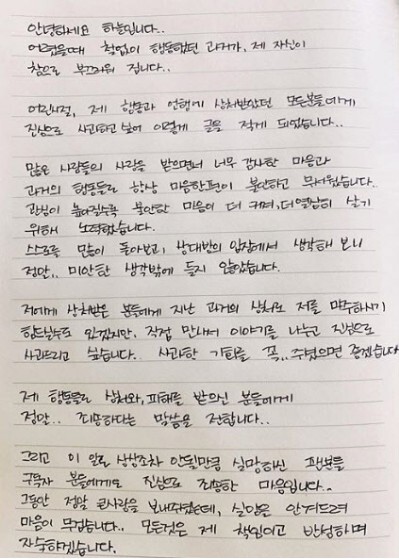 안녕하세요 하늘입니다..
어렸을때 철없이 행동했던 과거가, 제 자신이
참으로 부끄러워 집니다..
어린시절, 제 행동과 언행에 상처받았던 모든분들에게
진심으로 사과하고 싶어 이렇게 글을 적게 되었습니다..
많은 사람들의 사랑을 받으면서 너무 감사한 마음과
과거의 행동들로 항상 마음한편이 불안하고 무서웠습니다.
관심이 높아질수록 불안한 마음이 더 커며, 더 열심히 살기
위해 노력했습니다.
스스로를 많이 돌아보고, 상대방의 입장에서 생각해 보니
정말.. 미안한 생각밖에 들지 않았습니다.
저에게 상처받은 분들에게 지난 과거의 상처로 저를 마주하시기
힘드실수도 있겠지만, 직접 만나서 이야기를 나누고 진심으로
사과드리고 싶습니다.. 사과할 기회를 꼭.. 주셨으면 좋겠습니다
제 행동들로 상처와, 피해를 받으신 분들에게
정말.. 죄송하다는 말씀을 전합니다..
그리고 이 일로 상상조차 안될만큼 실망하신 팬분들
구독자 분들에게도 진심으로 죄송한 마음입니다..
그동안 정말 큰사랑을 보내주셨는데, 실망을 안겨드려
마음이 무겁습니다.. 모든것은 제 책임이고 반성하며
자숙하겠습니다.